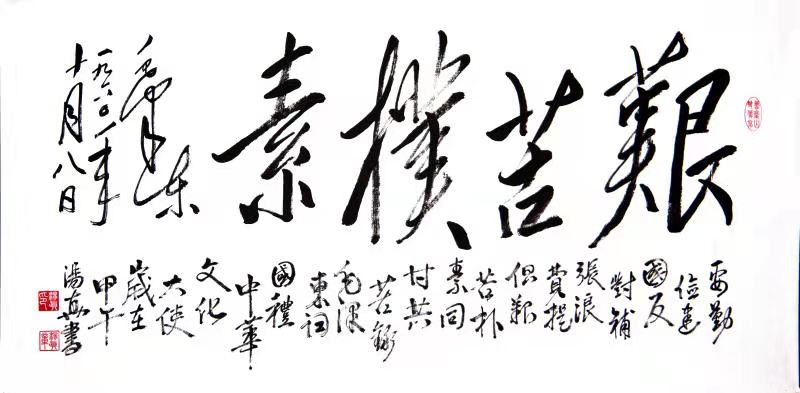 艱苦樸素
毛澤東
一九六〇年
十月八日
要勤
儉建
國反
對鋪
張浪
費提
倡艱
苦朴
素同
甘共
苦錄
毛澤
東詞
國禮
中華
文化
大使
歲在
甲午
湯書